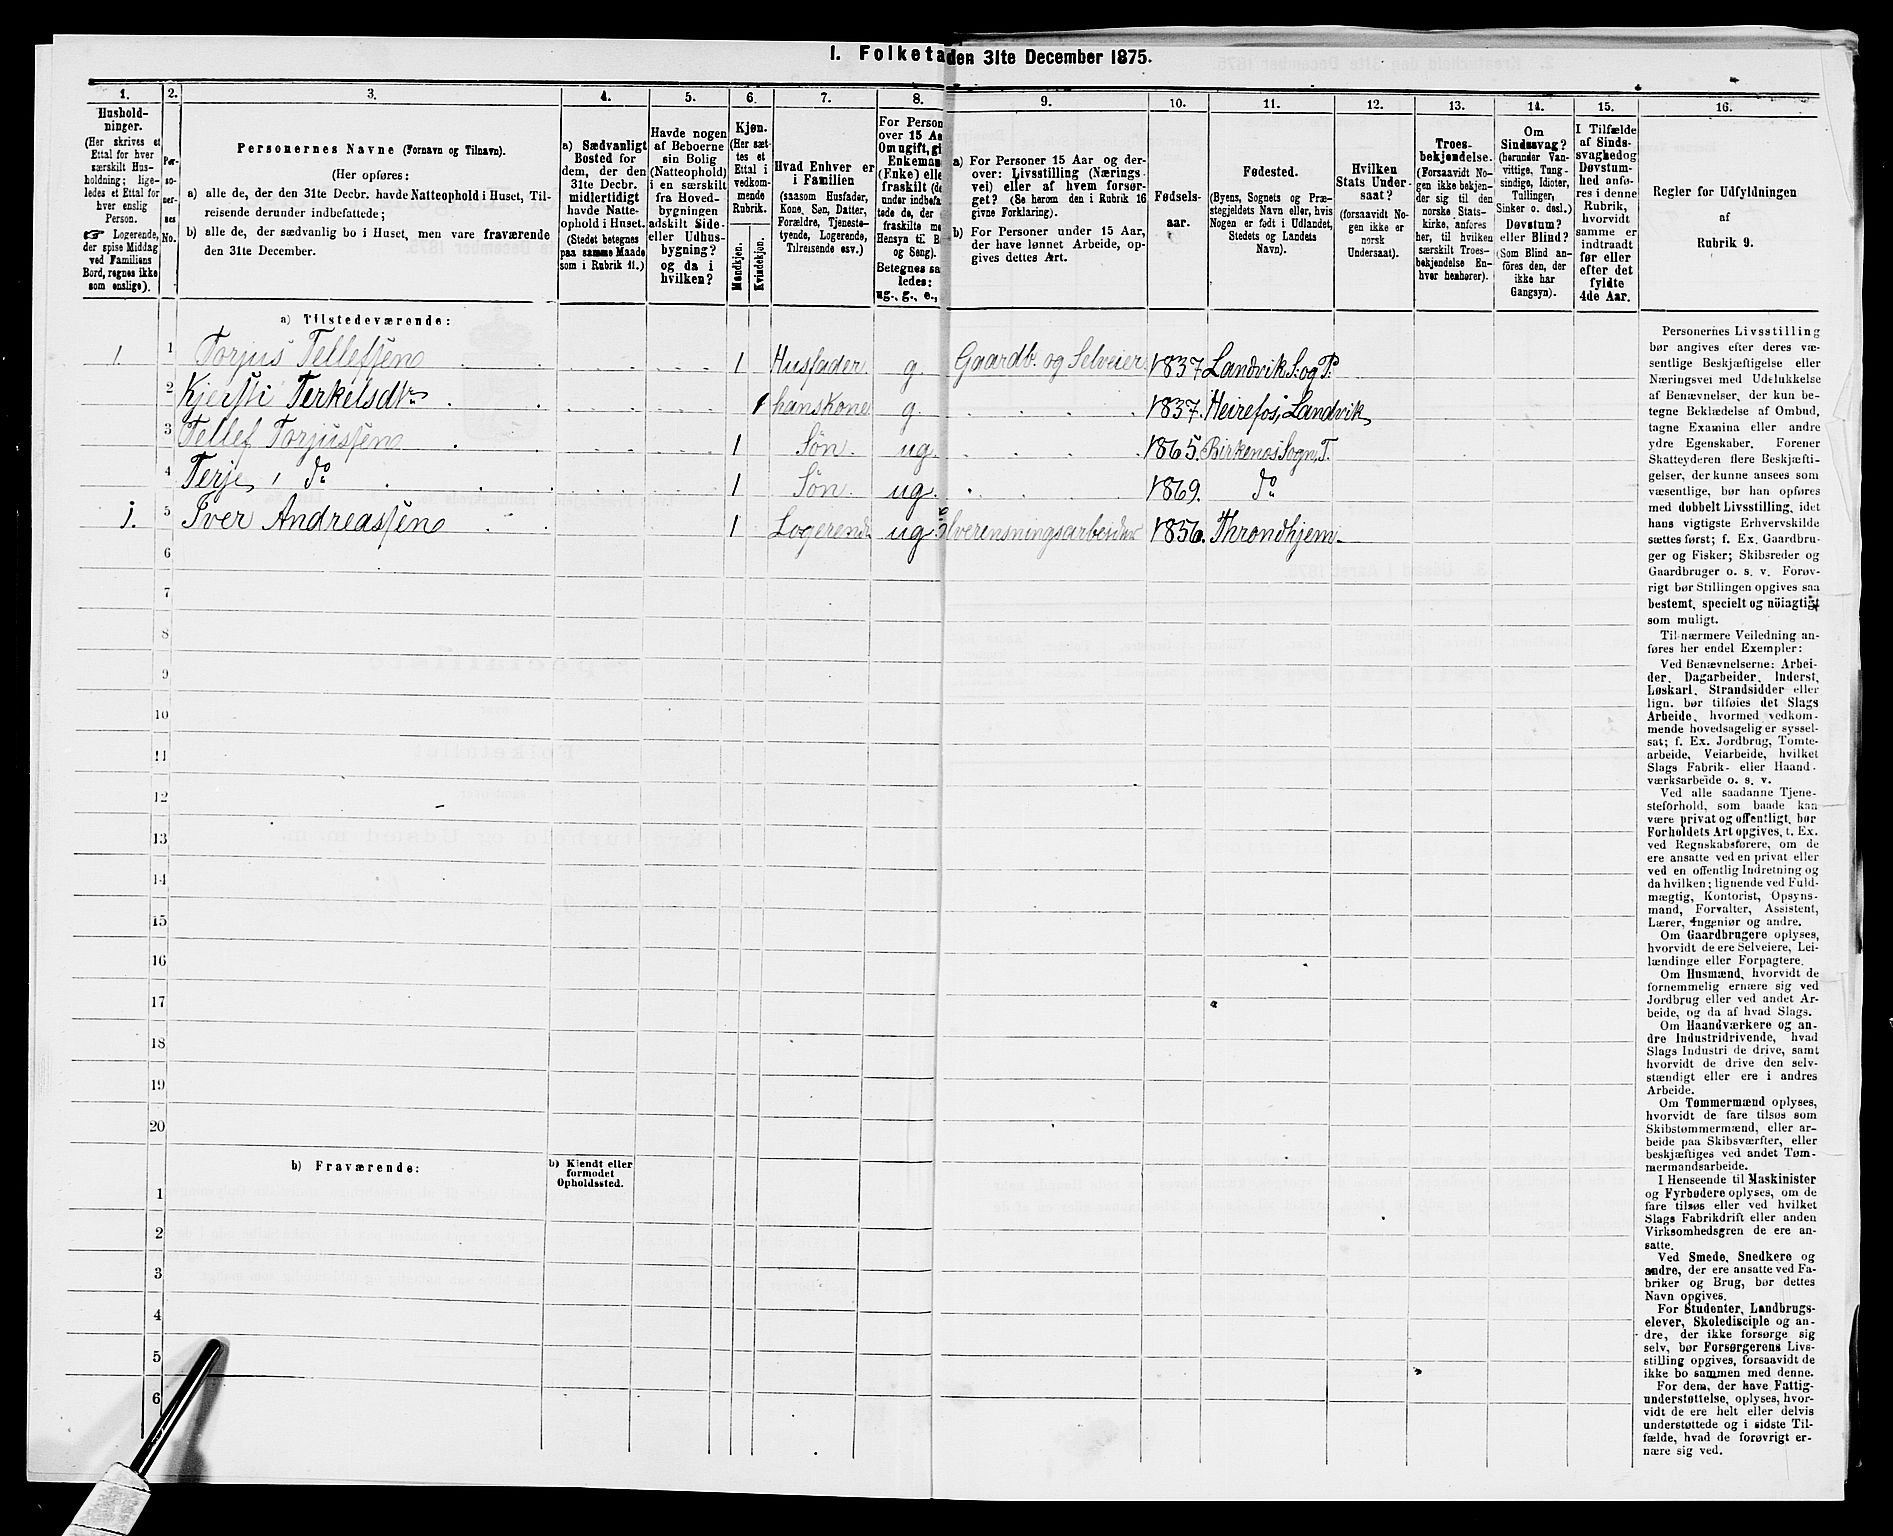 I. Folketa den 31te December 1875.
1. 2. 3. 4. 5. 6. 7. 8. 9. 10. 11. 12. 13. 14. 15. 16.
Hushold-
ninger.
(Her skrives et
Ettal for hver
særskilt Hus-
holdning; lige-
ledes et Ettal for
hver enslig
Person.
☞ Logerende,
der spise Middag
ved Familiens
Bord, regnes ikke
som enslige).
Per-
so-
ner-
nes
No.
Personernes Navne (Fornavn og Tilnavn).
(Her opføres:
a) alle de, der den 31te Decbr. havde Natteophold i Huset, Til-
reisende derunder indbefattede;
b) alle de, der sædvanlig bo i Huset, men vare fraværende
den 31te December.
a) Sædvanligt
Bosted for
dem, der den
31te Decbr.
midlertidigt
havde Natte-
ophold i Huset.
(Stedet betegnes
paa samme Maade
som i Rubrik 11.)
Havde nogen
af Beboerne
sin Bolig
(Natteophold)
i en særskilt
fra Hoved-
bygningen
adskilt Side-
eller Udhus-
bygning?
og da i
hvilken?
Kjøn.
(Her sæt-
tes et
Ettal i
vedkom-
mende
Rubrik.
Mandkjøn.
Kvindekjøn.
Hvad Enhver er
i Familien
(saasom Husfader,
Kone, Søn, Datter,
Forældre, Tjeneste-
tyende, Logerende,
Tilreisende osv.)
For Person
over 15 Aa
Om ugift, gi
Enkeman
(Enke) elle
fraskilt (de
under indbefa
tede de, der
fraskilte m
Hensyn til B
og Seng).
Betegnes sa
ledes:
ug., g., e.,
a) For Personer 15 Aar og der-
over: Livsstilling (Nærings-
vei) eller af hvem forsør-
get? (Se herom den i Rubrik 16
givne Forklaring).
b) For Personer under 15 Aar,
der have lønnet Arbeide, op-
gives dettes Art.
Fødsels-
aar.
Fødested.
(Byens, Sognets og Præ-
stegjeldets Navn eller, hvis
Nogen er født i Udlandet,
Stedets og Landets
Navn).
Hvilken
Stats Under-
saat?
(forsaavidt No-
gen ikke er
norsk
Undersaat).
Troes-
bekjendelse.
(Forsaavidt No-
gen ikke bekjen-
der sig til den
norske Stats-
kirke, anføres
her, til hvilken
særskilt Troes-
bekjendelse En-
hver henhører).
Om
Sindssvag?
(herunder Van-
vittige, Tung-
sindige, Idioter,
Tullinger,
Sinker o. desl.)
Døvstum?
eller Blind?
(Som Blind an-
føres den, der
ikke har
Gangsyn).
I Tilfælde
af Sinds-
svaghed og
Døvstum-
hed anfø-
res i denne
Rubrik,
hvorvidt
samme er
indtraadt
før eller
efter det
fyldte
4de Aar.
Regler for Udfyldningen
af
Rubrik 9.
a) Tilstedeværende:
1. 1 Torjus Tellefsen 1 Husfader g. Gaardb. og Selveier. 1837. Landvik S. og P.
2 Kjersti Terkelsdtr 1 hans Kone g. 1837. Heirefos, Landvik
3 Tellef Torjussen 1 Søn ug. 1865. Birkenes Sogn, P.
4 Terje, do 1 Søn ug. 1869. do
1. 5 Iver Andreassen 1 Logerende ug. Elverensningsarbeider 1856. Throndhjem.
6
7
8
9
10
11
12
13
14
15
16
17
18
19
20
b) Fraværende:
b) Kjendt eller
formodet
Opholdssted.
1
2
3
4
5
6
Personernes Livsstilling
bør angives efter deres væ-
sentlige Beskjæftigelse eller
Næringsvei med Udelukkelse
af Benævnelser, der kun be-
tegne Beklædelse af Ombud,
tagne Examina eller andre
ydre Egenskaber. Forener
Skatteyderen flere Beskjæfti-
gelser, der kunne ansees som
væsentlige, bør han opføres
med dobbelt Livsstilling, idet
hans vigtigste Erhvervskilde
sættes først; f. Ex. Gaardbru-
ger og Fisker; Skibsreder og
Gaardbruger o. s. v. Forøv-
rigt bør Stillingen opgives saa
bestemt, specielt og nöiagtigt
som muligt.
Til nærmere Veiledning an-
føres her endel Exempler:
Ved Benævnelserne: Arbei-
der, Dagarbeider, Inderst,
Løskarl, Strandsidder eller
lign. bør tilføies det Slags
Arbeide, hvormed vedkom-
mende hovedsagelig er syssel-
sat; f. Ex. Jordbrug, Tomte-
arbeide, Veiarbeide, hvilket
Slags Fabrik- eller Haand-
værksarbeide o. s. v.
Ved alle saadanne Tjene-
steforhold, som baade kan
være privat og offentligt, bør
Forholdets Art opgives, t. Ex.
ved Regnskabsførere, om de
ere ansatte ved en privat eller
ved en offentlig Indretning og
da hvilken; lignende ved Fuld-
mægtig, Kontorist, Opsyns-
mand, Forvalter, Assistent,
Lærer, Ingeniør og andre.
Om Gaardbrugere oplyses,
hvorvidt de ere Selveiere, Lei-
lændinge eller Forpagtere.
Om Husmænd, hvorvidt de
fornemmelig ernære sig ved
Jordbrug eller ved andet Ar-
beide, og da af hvad Slags.
Om Haandværkere og an-
dre Industridrivende, hvad
Slags Industri de drive, samt
hvorvidt de drive den selv-
stændigt eller ere i andres
Arbeide.
Om Tømmermænd oplyses,
hvorvidt de fare tilsøs som
Skibstømmermænd, eller ar-
beide paa Skibsværfter, eller
beskjæftiges ved andet Tøm-
mermandsarbeide.
I Henseende til Maskinister
og Fyrbødere oplyses, om de
fare tilsøs eller ved hvilket
Slags Fabrikdrift eller anden
Virksomhedsgren de ere an-
satte.
Ved Smede, Snedkere og
andre, der ere ansatte ved Fa-
briker og Brug, bør dettes
Navn opgives.
For Studenter, Landbrugs-
elever, Skoledisciple og an-
dre, der ikke forsørge sig
selv, bør Forsørgerens Livs-
stilling opgives, forsaavidt de
ikke bo sammen med denne.
For dem, der have Fattig-
understøttelse, oplyses, hvor-
vidt de ere helt eller delvis
understøttede og i sidste Til-
fælde, hvad de forøvrigt er-
nære sig ved.